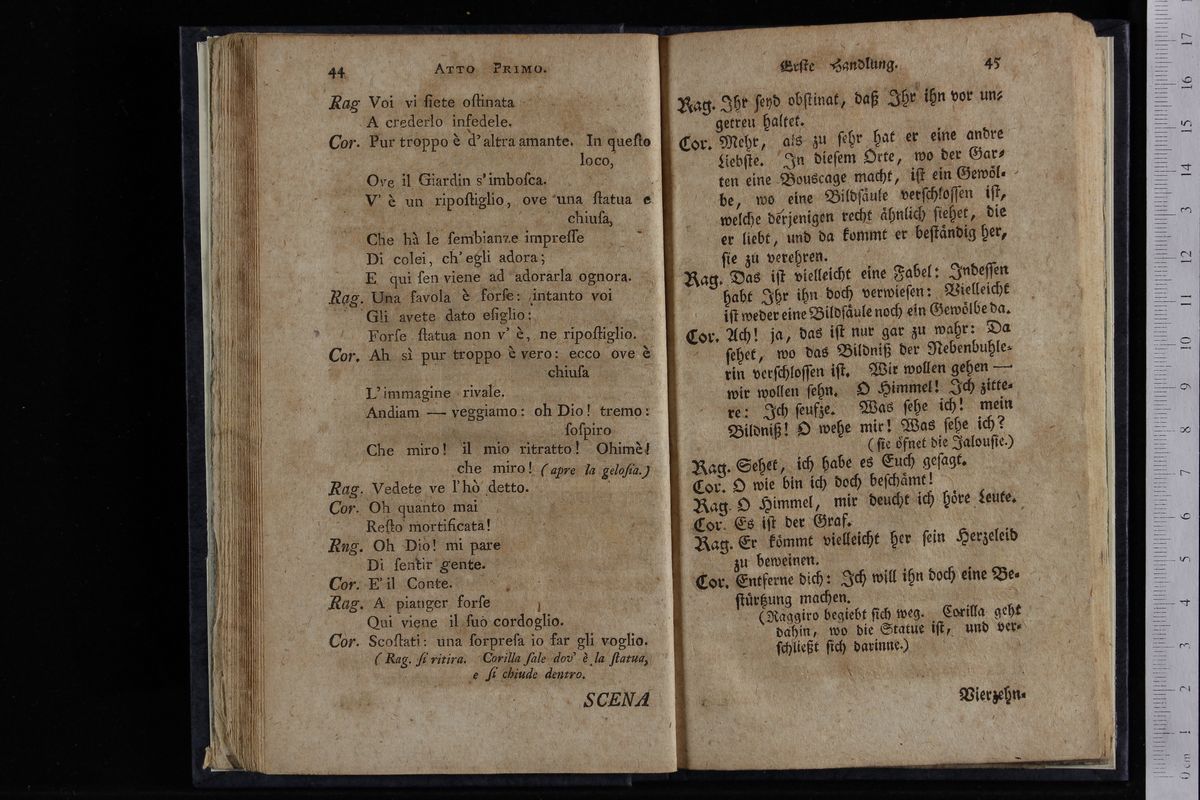 44 ATTO PRIMO.
Rag Voi vi ſiete oſtinata
A crederlo infedele.
Cor. Pur troppo è d'altra amante. In queſto
loco,
Ove il Giardin s'imboſca.
V' è un ripoſtiglio, ove una ſtatua e
chiuſa,
Che hà le ſembianze impreſſe
Di colei, ch'egli adora;
E qui ſen viene ad adorarla ognora.
Rag. Una favola è forſe: intanto voi
Gli avete dato eſiglio:
Forſe ſtatua non v' è, ne ripoſtiglio.
Cor. Ah sì pur troppo è vero: ecco ove è
chiuſa
L'immagine rivale.
Andiam — veggiamo: oh Dio! tremo:
ſoſpiro
Che miro! il mio ritratto! Ohimè!
che miro! (apre la geloſia.)
Rag. Vedete ve l'hò detto.
Cor. Oh quanto mai
Reſto mortificata!
Rng. Oh Dio! mi pare
Di ſentir gente.
Cor. E' il Conte.
Rag. A pianger forſe
Qui viene il ſuo cordoglio.
Cor. Scoſtati: una ſorpreſa io far gli voglio.
(Rag. ſi ritira. Corilla ſale dov' è la ſtatua,
e ſi chiude dentro.
SCENA
Erſte Handlung. 45
Rag. Ihr ſeyd obſtinat, daß Ihr ihn vor un-
getreu haltet.
Cor. Mehr, als zu ſehr hat er eine andre
Liebſte. In dieſem Orte, wo der Gar-
ten eine Bouscage macht, iſt ein Gewöl-
be, wo eine Bildſäule verſchloſſen iſt,
welche derjenigen recht ähnlich ſiehet, die
er liebt, und da kommt er beſtändig her,
ſie zu verehren.
Rag. Das iſt vielleicht eine Fabel: Indeſſen
habt Ihr ihn doch verwieſen: Vielleicht
iſt weder eine Bildſäule noch ein Gewölbe da.
Cor. Ach! ja, das iſt nur gar zu wahr: Da
ſehet, wo das Bildniß der Nebenbuhle-
rin verſchloſſen iſt. Wir wollen gehen —
wir wollen ſehn. O Himmel! Ich zitte-
re: Ich ſeufze. Was ſehe ich! mein
Bildniß! O wehe mir! Was ſehe ich?
(ſie öfnet die Jalouſie.)
Rag. Sehet, ich habe es Euch geſagt.
Cor. O wie bin ich doch beſchämt!
Rag. O Himmel, mir deucht ich höre Leute.
Cor. Es iſt der Graf.
Rag. Er kömmt vielleicht her ſein Herzeleid
zu beweinen.
Cor. Entferne dich: Ich will ihn doch eine Be-
ſtürtzung machen.
(Raggiro begiebt ſich weg. Corilla geht
dahin, wo die Statue iſt, und ver-
ſchließt ſich darinne.)
Vierzehn-
0 cm 1 2 3 4 5 6 7 8 9 10 11 12 13 14 15 16 17